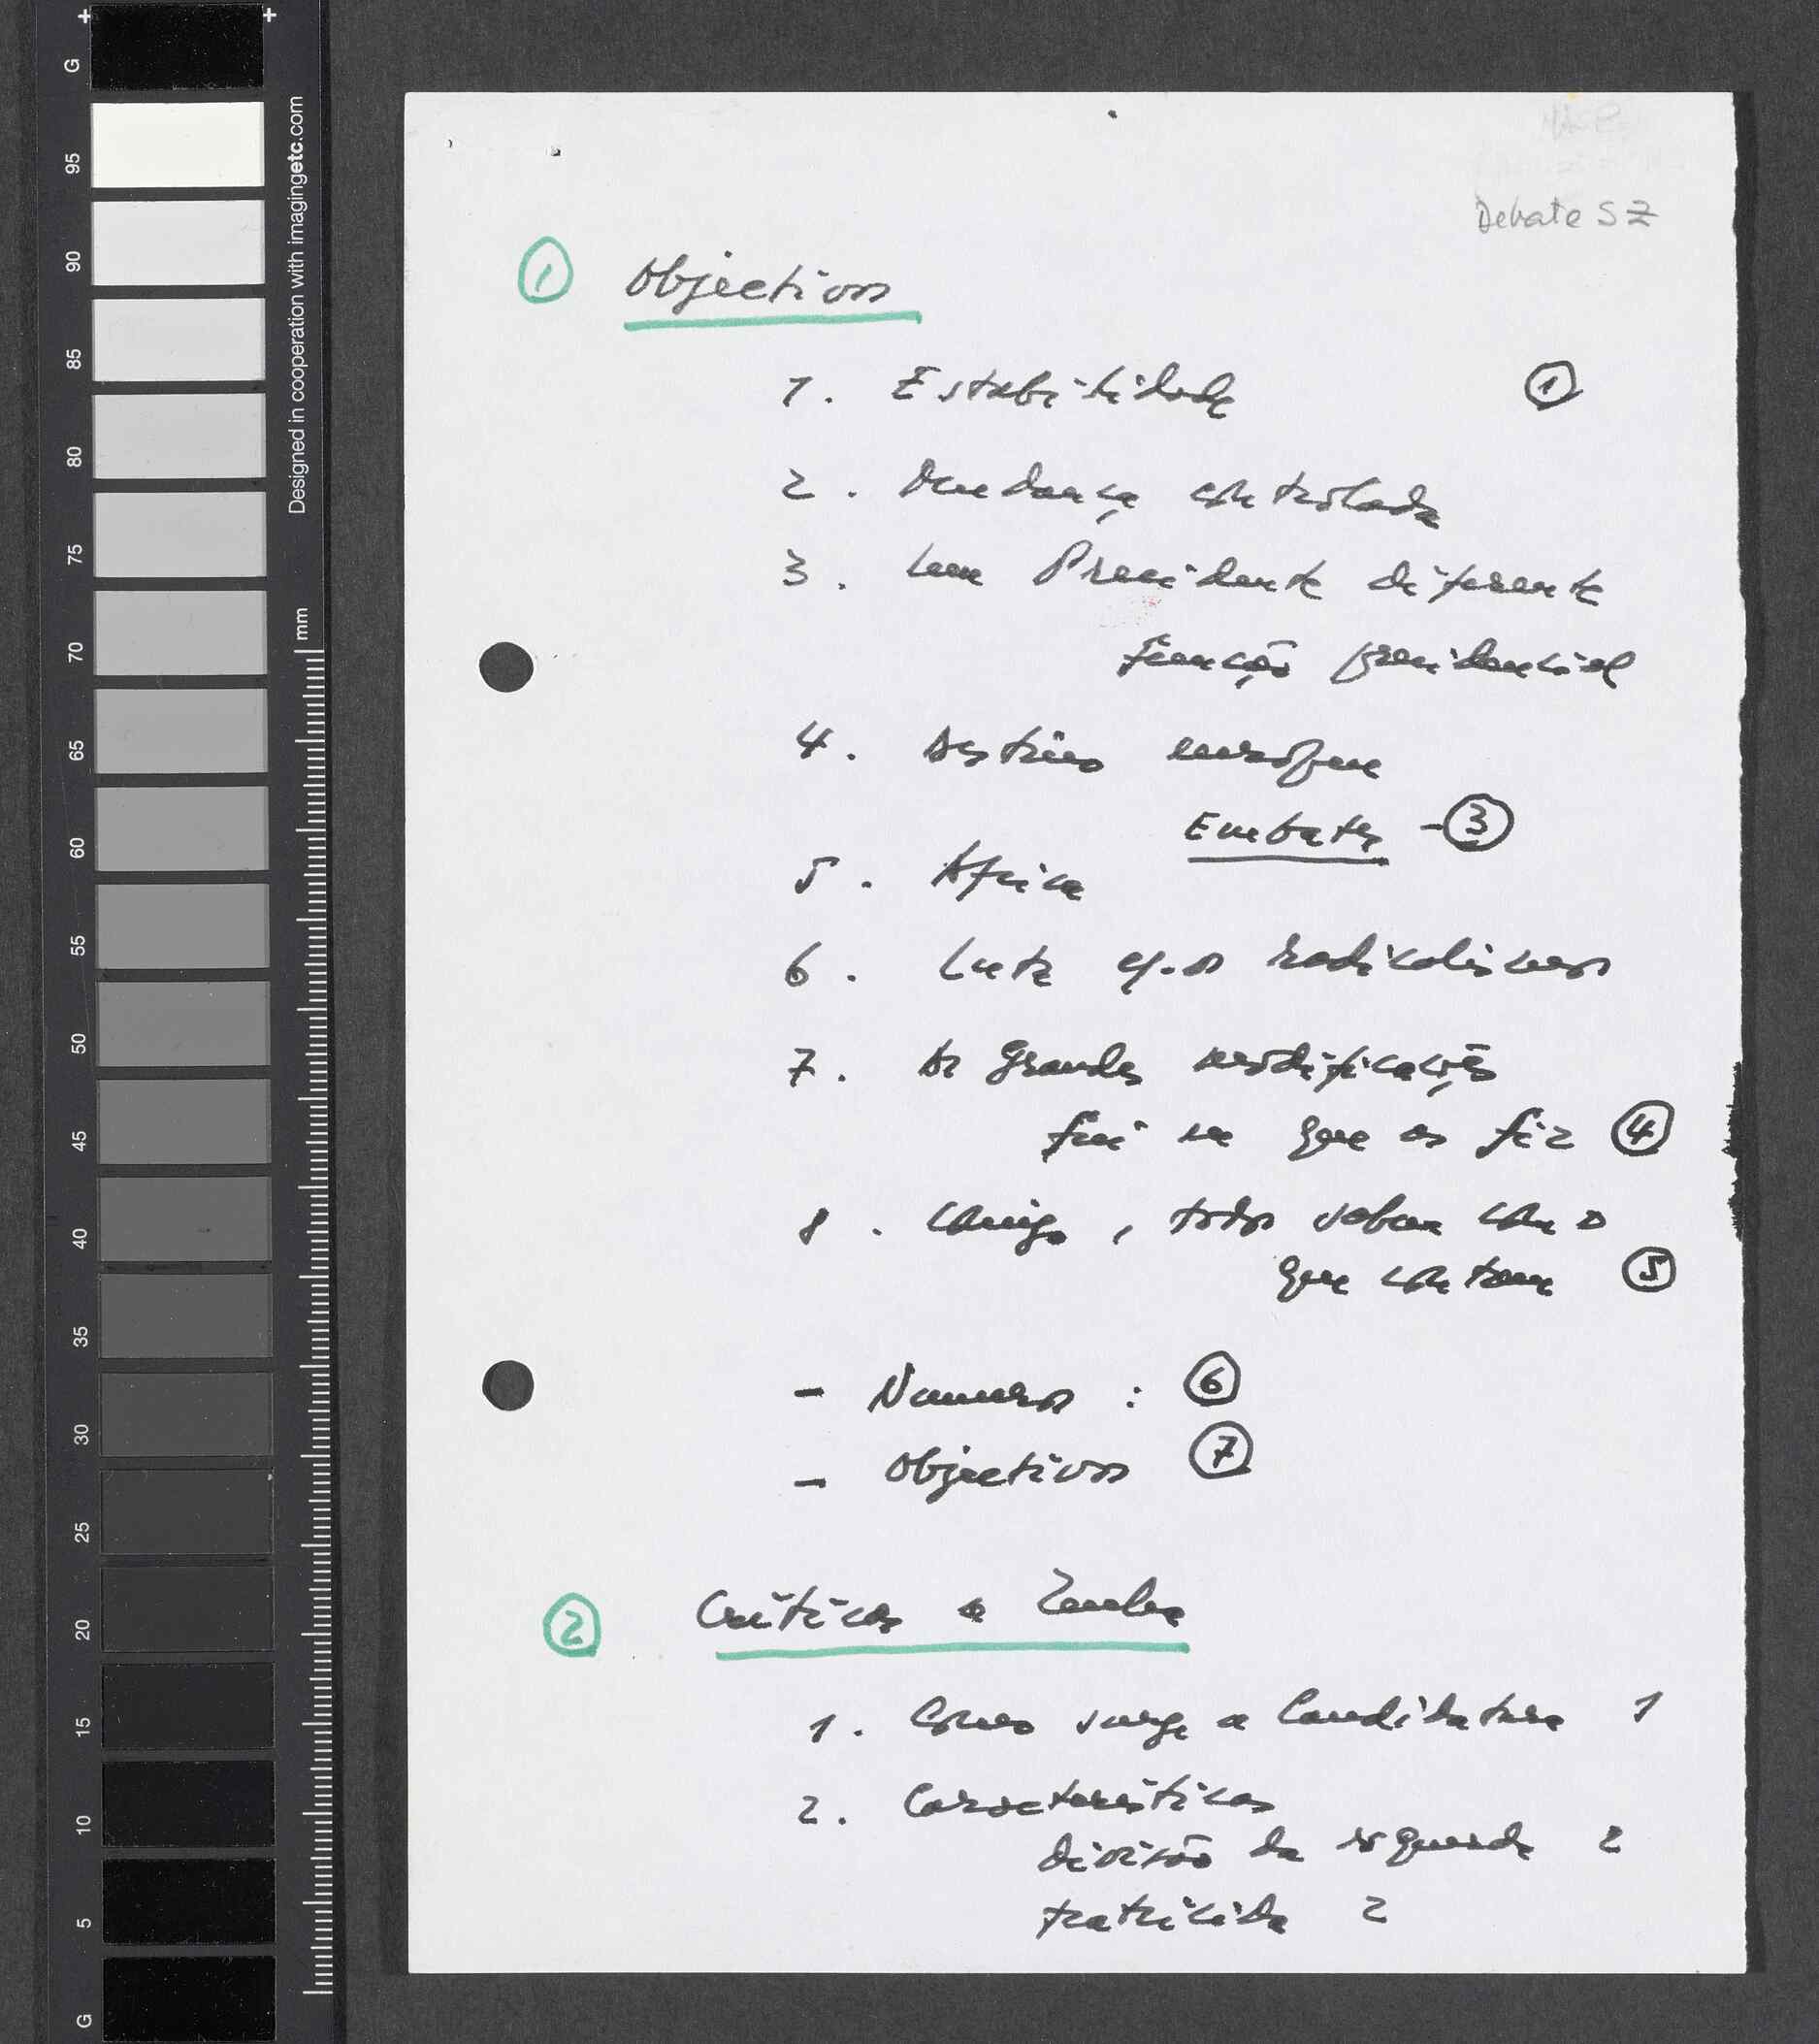 Debate SZ
① Objectivos
1. Estabilidade ①
2. Mudança controlada
3. Um Presidente diferente
função presidencial
4. Destino europeu
Embates - ③
5. Africa
6. Luta c/. os radicalismos
7. As Grandes modificações
fui eu que as fiz ④
8. Comigo, todos sabem com o
que contam ⑤
- Numeros : ⑥
- Objectivos ⑦
② Críticas a Zenha
1. Como surge a Candidatura 1
2. Características
divisão da esquerda 2
fratricida 2
G
95
90
85
80
75
70
65
60
55
50
45
40
35
30
25
20
15
10
5
G
Designed in cooperation with imagingetc.com
mm